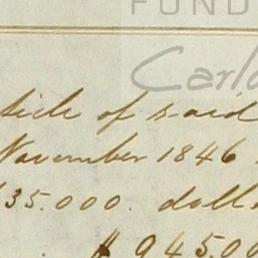 FUND
Carlo
ticle of said
November 1846
$35.000. doll
$945.00